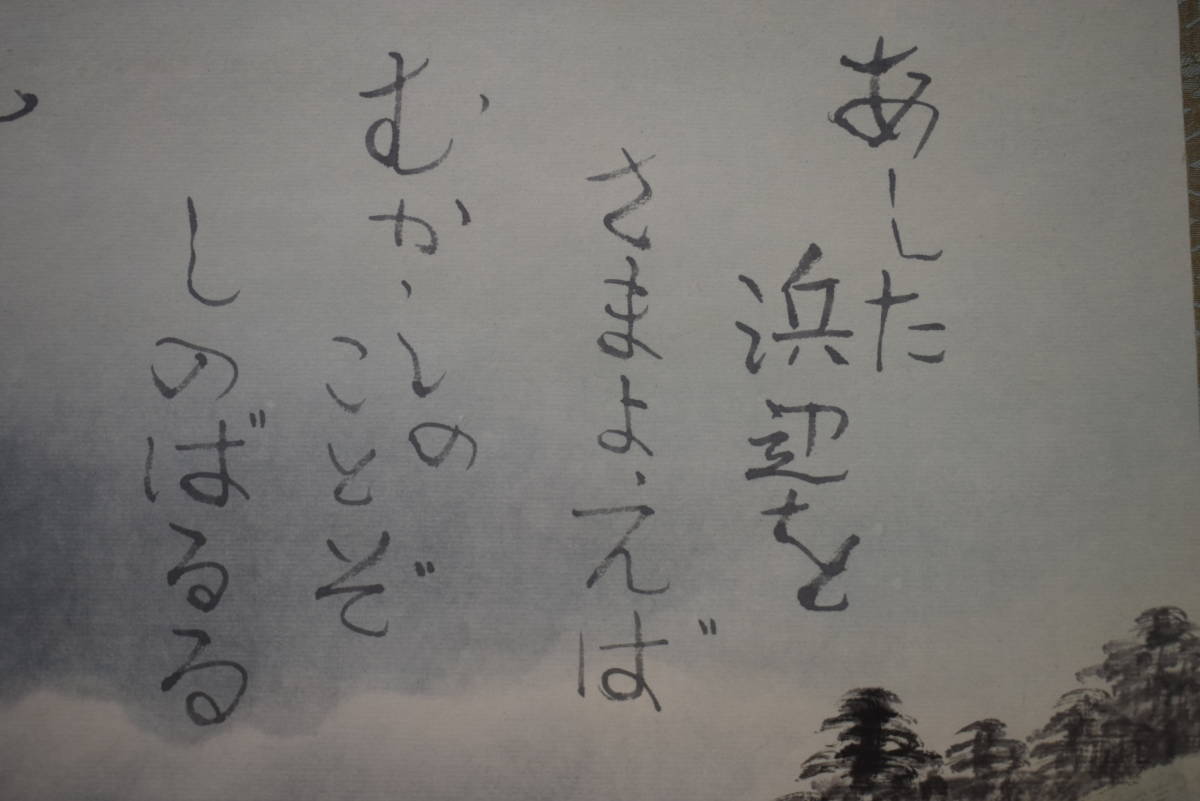 あした
浜辺を
さまよえば
むかしの
ことぞ
しのばるる